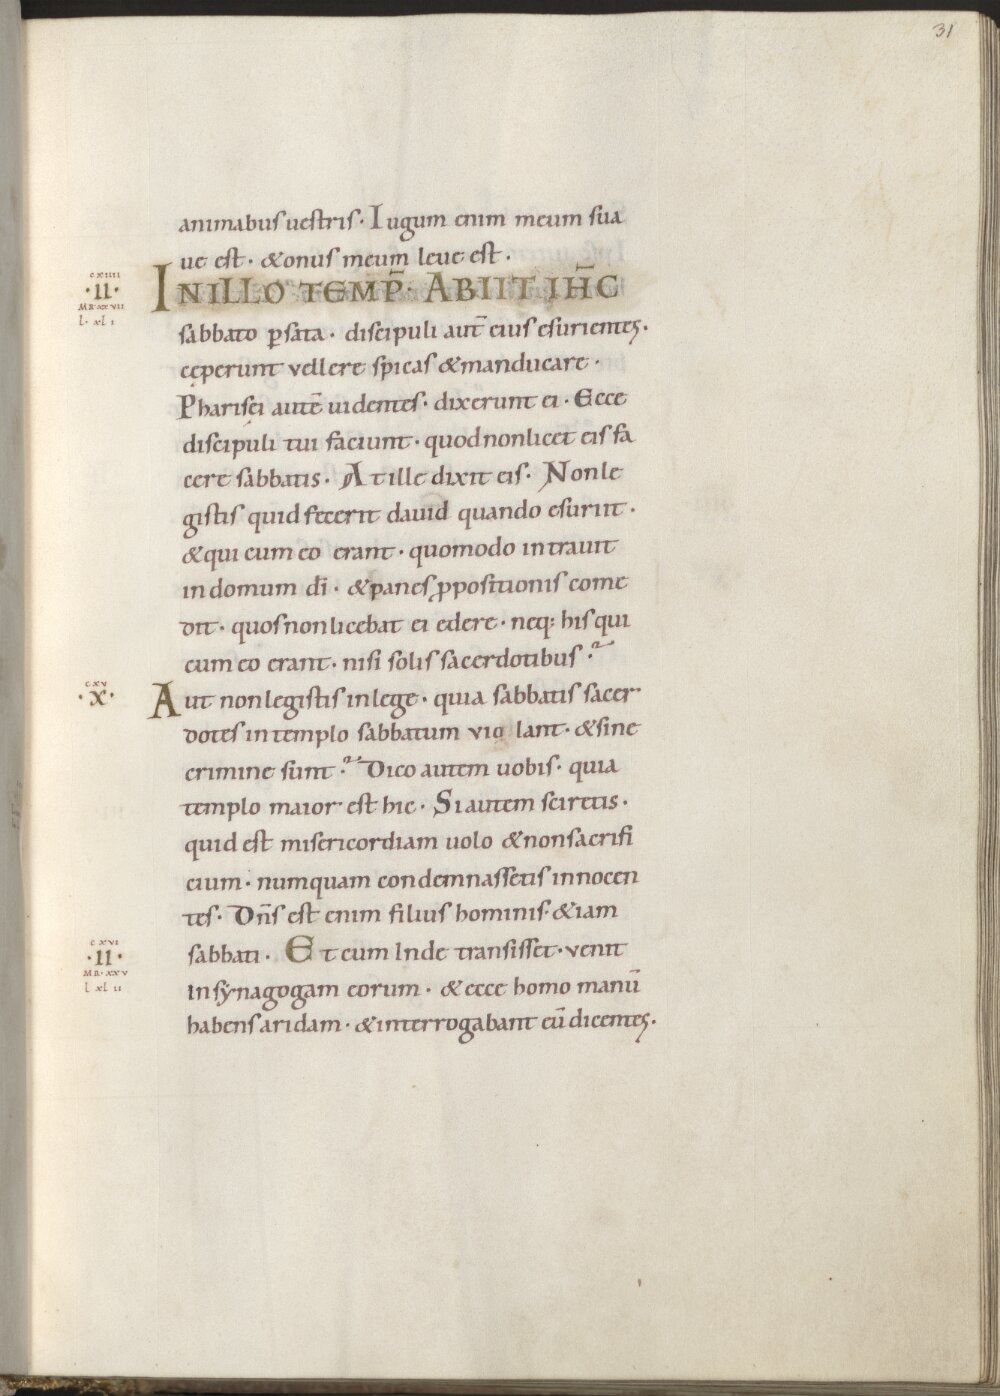 31
animabus uestris · Iugum enim meum sua
ue est · & onus meum leue est ·
cxiiii
·II·
MR·xxvii
l· xli
IN ILLO TEMP̄· ABIIT IH̄C
sabbato p̱ sata · discipuli aut̄ eius esurientes·
cęperunt vellere spicas & manducare ·
Pharisęi autē uidentes · dixerunt ei · Ecce
discipuli tui faciunt · quod non licet eis fa
cere sabbatis · At ille dixit eis · Non le
gistis quid fecerit dauid quando esuriit ·
& qui cum eo erant · quomodo intrauit
in domum dī · & panes ꝓpositionis come
dit · quos non licebat ei edere · neq: his qui
cum eo erant · nisi solis sacerdotibus ?
cxv
·X·
Aut non legistis in lege · quia sabbatis sacer
dotes in templo sabbatum vio lant · & sine
crimine sunt ? Dico autem uobis · quia
templo maior est hic · Si autem sciretis ·
quid est misericordiam uolo & non sacrifi
cium · numquam condemnassetis innocen
tes · Dn̄s est enim filius hominis · & iam
cxvi
·II·
MR·xxv
l xlii
sabbati · Et cum Inde transisset · venit
in synagogam eorum · & ecce homo manū
habens aridam · & interrogabant eū dicentes·